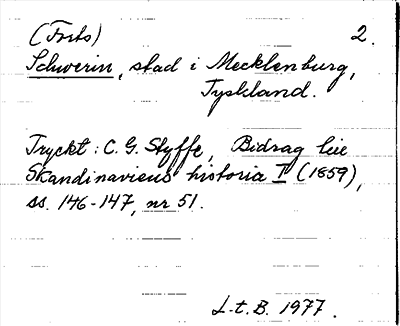 (Forts) 2.
Schwerin, stad i Mecklenburg,
Tyskland.
Tryckt: C. G. Styffe, Bidrag till
Skandinaviens historia I (1859),
ss. 146-147, nr 51.
L-t. B. 1977.